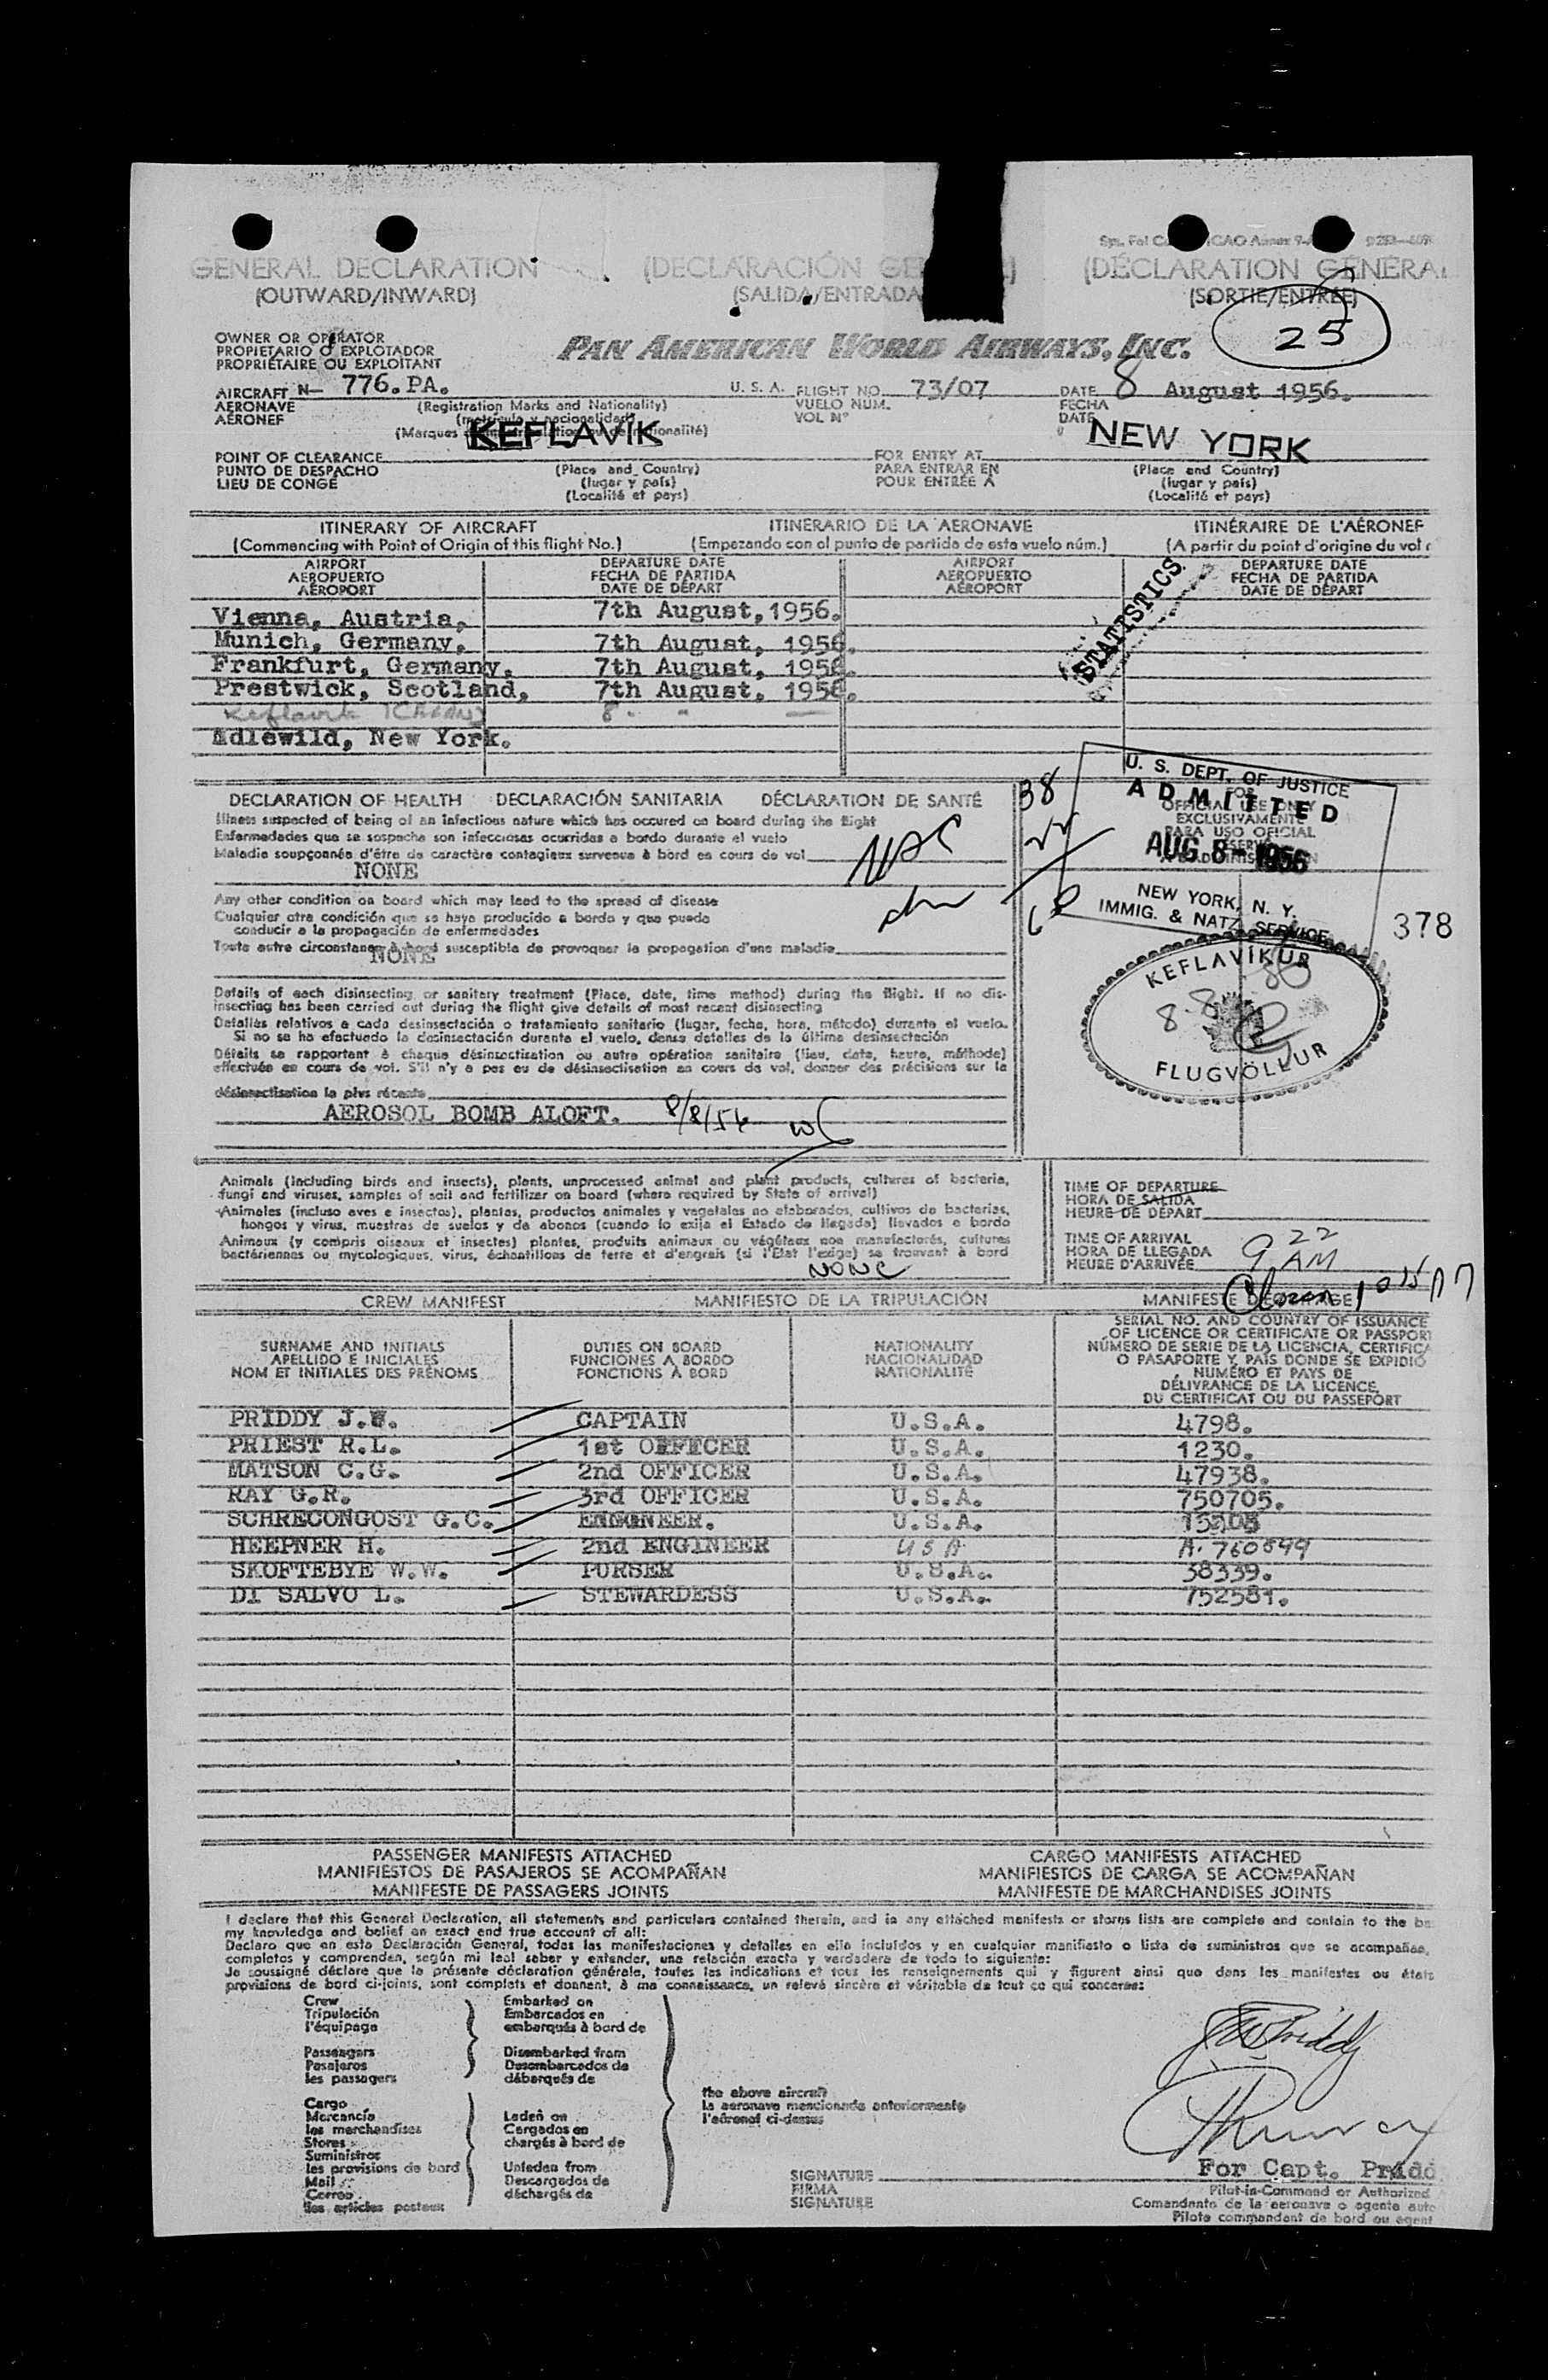 GENERAL DECLARATION
(OUTWARD/INWARD)
(DECLARACIÓN GE
(SALIDA/ENTRADA
ICAO Annex 9-
(DÉCLARATION GÉNÉRA
(SORTIE/ENTRÉE)
25
OWNER OR OPERATOR
PROPIETARIO O EXPLOTADOR
PROPRIÉTAIRE OU EXPLOITANT
PAN AMERICAN WORLD AIRWAYS, INC.
AIRCRAFT N— 776.PA. U. S. A. FLIGHT NO. 73/07 DATE 8 August 1956.
AERONAVE (Registration Marks and Nationality) VUELO NUM. FECHA
AÉRONEF VOL Nº DATE
KEFLAVIK
NEW YORK
POINT OF CLEARANCE (Place and Country) FOR ENTRY AT (Place and Country)
PUNTO DE DESPACHO (lugar y país) PARA ENTRAR EN (lugar y país)
LIEU DE CONGÉ (Localité et pays) POUR ENTRÉE À (Localité et pays)
ITINERARY OF AIRCRAFT ITINERARIO DE LA AERONAVE ITINÉRAIRE DE L'AÉRONEF
(Commencing with Point of Origin of this flight No.) (Empezando con el punto de partida de este vuelo núm.) (A partir du point d'origine du vol
AIRPORT DEPARTURE DATE AIRPORT DEPARTURE DATE
AEROPUERTO FECHA DE PARTIDA AEROPUERTO FECHA DE PARTIDA
AÉROPORT DATE DE DÉPART AÉROPORT DATE DE DÉPART
STATISTICS
Vienna, Austria, 7th August, 1956.
Munich, Germany, 7th August, 1956.
Frankfurt, Germany, 7th August, 1956.
Prestwick, Scotland, 7th August, 1956.
Keflavik 8. " —
Adlewild, New York.
DECLARATION OF HEALTH DECLARACIÓN SANITARIA DÉCLARATION DE SANTÉ
Illness suspected of being of an infectious nature which has occured on board during the flight
Enfermedades que se sospecha son infecciosas ocurridas a bordo durante el vuelo
Maladie soupçonnée d'être de caractère contagieux survenue à bord en cours de vol
NONE
Any other condition on board which may lead to the spread of disease
Cualquier otra condición que se haya producido a bordo y que pueda
conducir a la propagación de enfermedades
Toute autre circonstance à bord susceptible de provoquer la propagation d'une maladie
NONE
38
U. S. DEPT. OF JUSTICE
ADMITTED
FOR
OFFICIAL USE ONLY
EXCLUSIVAMENTE
PARA USO OFICIAL
AUG 8 - 1956
NEW YORK, N. Y.
IMMIG. & NATZ. SERVICE
378
KEFLAVÍKUR
8-8
FLUGVÖLLUR
Details of each disinsecting or sanitary treatment (Place, date, time method) during the flight. If no dis-
insecting has been carried out during the flight give details of most recent disinsecting
Detalles relativos a cada desinsectación o tratamiento sanitario (lugar, fecha, hora, método) durante el vuelo.
Si no se ha efectuado la desinsectación durante el vuelo, dense detalles de la última desinsectación
Détails se rapportant à chaque désinsectisation ou autre opération sanitaire (lieu, date, heure, méthode)
effectuée en cours de vol. S'il n'y a pas eu de désinsectisation en cours de vol, donner des précisions sur la
désinsectisation la plus récente
AEROSOL BOMB ALOFT. 8/8/56
Animals (including birds and insects), plants, unprocessed animal and plant products, cultures of bacteria,
fungi and viruses, samples of soil and fertilizer on board (where required by State of arrival)
Animales (incluso aves e insectos), plantas, productos animales y vegetales no elaborados, cultivos de bacterias,
hongos y virus, muestras de suelos y de abonos (cuando lo exija el Estado de llegada) llevados a bordo
Animaux (y compris oiseaux et insectes) plantes, produits animaux ou végétaux non manufacturés, cultures
bactériennes ou mycologiques, virus, échantillons de terre et d'engrais (si l'Etat l'exige) se trouvant à bord
NONE
TIME OF DEPARTURE
HORA DE SALIDA
HEURE DE DÉPART
TIME OF ARRIVAL
HORA DE LLEGADA
HEURE D'ARRIVÉE
9 22 AM
CREW MANIFEST MANIFIESTO DE LA TRIPULACIÓN MANIFESTE
SURNAME AND INITIALS DUTIES ON BOARD NATIONALITY SERIAL NO. AND COUNTRY OF ISSUANCE
APELLIDO E INICIALES FUNCIONES A BORDO NACIONALIDAD OF LICENCE OR CERTIFICATE OR PASSPORT
NOM ET INITIALES DES PRÉNOMS FONCTIONS À BORD NATIONALITÉ NÚMERO DE SERIE DE LA LICENCIA, CERTIFICA
O PASAPORTE Y PAÍS DONDE SE EXPIDIÓ
NUMÉRO ET PAYS DE
DÉLIVRANCE DE LA LICENCE,
DU CERTIFICAT OU DU PASSEPORT
PRIDDY J.W. CAPTAIN U.S.A. 4798.
PRIEST R.L. 1st OFFICER U.S.A. 1230.
MATSON C.G. 2nd OFFICER U.S.A. 47938.
RAY G.R. 3rd OFFICER U.S.A. 750705.
SCHRECONGOST G.C. ENGINEER. U.S.A.
HEEPNER H. 2nd ENGINEER USA A. 760899
SKOFTEBYE W.W. PURSER U.S.A. 38339.
DI SALVO L. STEWARDESS U.S.A. 752581.
PASSENGER MANIFESTS ATTACHED CARGO MANIFESTS ATTACHED
MANIFIESTOS DE PASAJEROS SE ACOMPAÑAN MANIFIESTOS DE CARGA SE ACOMPAÑAN
MANIFESTE DE PASSAGERS JOINTS MANIFESTE DE MARCHANDISES JOINTS
I declare that this General Declaration, all statements and particulars contained therein, and in any attached manifests or stores lists are complete and contain to the be
my knowledge and belief an exact and true account of all:
Declaro que en esta Declaración General, todas las manifestaciones y detalles en ella incluidos y en cualquier manifiesto o lista de suministros que se acompañan,
completos y comprenden, según mi leal saber y entender, una relación exacta y verdadera de todo lo siguiente:
Je soussigné déclare que la présente déclaration générale, toutes les indications et tous les renseignements qui y figurent ainsi que dans les manifestes ou états
provisions de bord ci-joints, sont complets et donnent, à ma connaissance, un relevé sincère et véritable de tout ce qui concerne:
Crew Embarked on
Tripulación Embarcados en
l'équipage embarqués à bord de
Passengers Disembarked from
Pasajeros Desembarcados de
les passagers débarqués de
the above aircraft
la aeronave mencionada anteriormente
l'aéronef ci-dessus
Cargo
Mercancía Laden on
les marchandises Cargados en
Stores chargés à bord de
Suministros
les provisions de bord Unladen from
Mail Descargados de
Correo déchargés de
les articles postaux
JW Priddy
SIGNATURE For Capt. Pridd
FIRMA Pilot-in-Command or Authorized
SIGNATURE Comandante de la aeronave o agente auto
Pilote commandant de bord ou agent